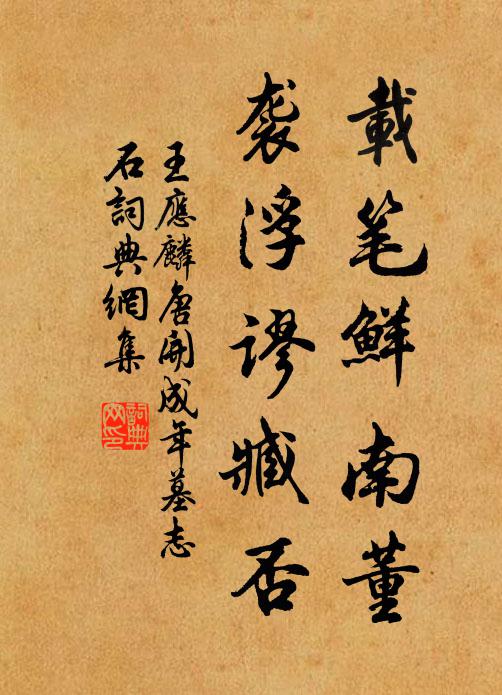 載笔鮮南董
袭浮謬臧否
王應麟唐開成年墓志
石詞典網集
詞典
网印